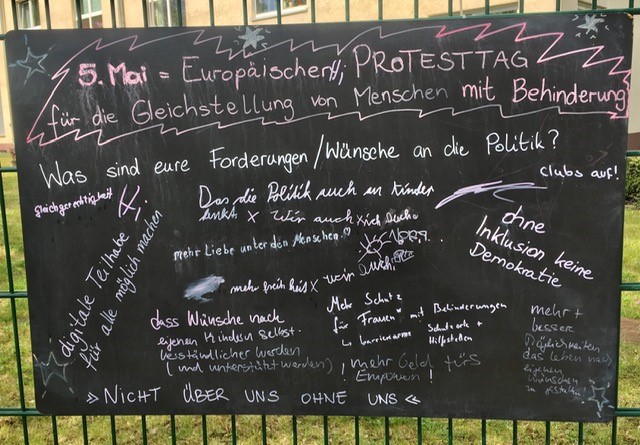 5. Mai = Europäischer PROTESTTAG
für die Gleichstellung von Menschen mit Behinderung
Was sind eure Forderungen/Wünsche an die Politik?
clubs auf!
gleichgerechtigkeit
Das die Politik auch an Kinder
denkt x wir auch x ich
mehr Liebe unter den Menschen.
mehr freiheit x wir
ohne
Inklusion keine
Demokratie
digitale Teilhabe
für alle möglich machen
dass Wünsche nach
eigenen Kindern selbst-
verständlicher werden
(und unterstützt werden)
Mehr Schutz
für Frauen mit Behinderungen
↳ barrierearme Schutzorte +
Hilfestellen
mehr Geld fürs
Empowern!
mehr +
bessere
Möglichkeiten
das Leben nach
eigenen
Wünschen
zu gestalten!
» NICHT ÜBER UNS OHNE UNS «